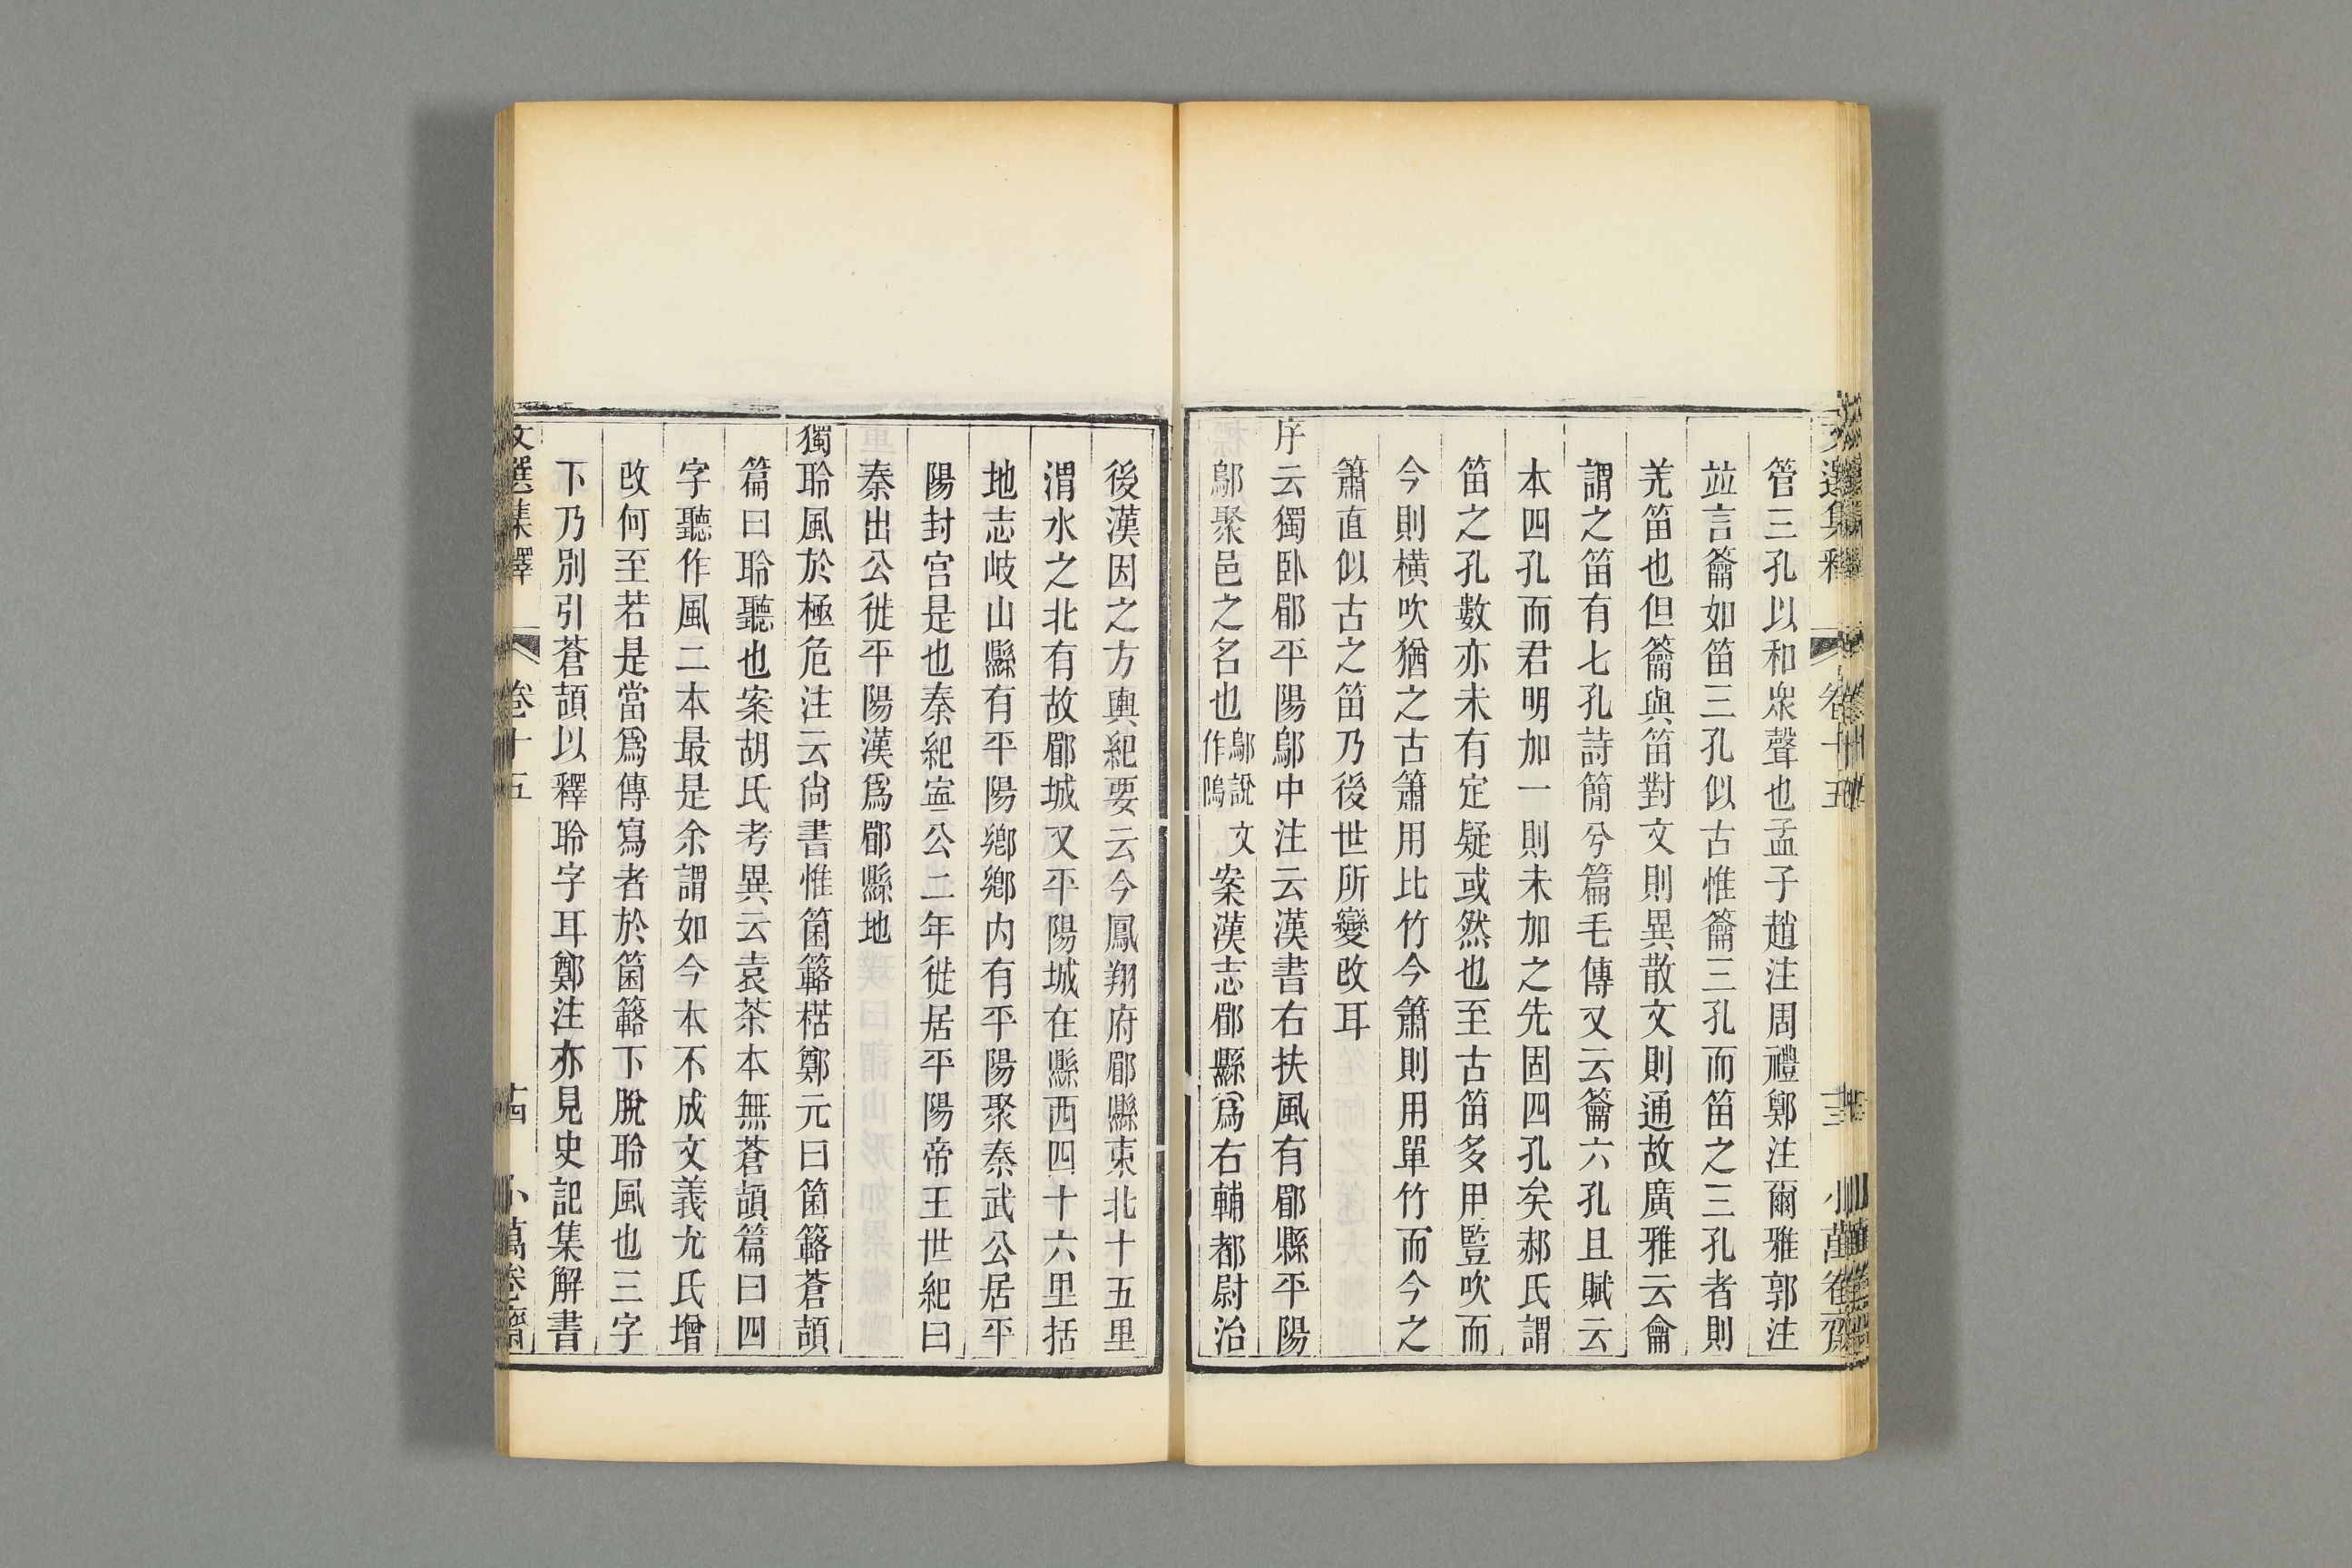 管三孔以和衆聲也孟子趙注周禮鄭注爾雅郭注
竝言籥如笛三孔似古惟籥三孔而笛之三孔者則
羌笛也但籥與笛對文則異散文則通故廣雅云龠
謂之笛有七孔詩簡兮篇毛傳又云籥六孔且賦云
本四孔而君明加一則未加之先固四孔矣郝氏謂
笛之孔數亦未有定疑或然也至古笛多用豎吹而
今則橫吹猶之古簫用比竹今簫則用單竹而今之
簫直似古之笛乃後世所變改耳
序云獨臥郿平陽鄔中注云漢書右扶風有郿縣平陽
鄔聚邑之名也鄔說文作隖案漢志郿縣爲右輔都尉治
後漢因之方輿紀要云今鳳翔府郿縣東北十五里
渭水之北有故郿城又平陽城在縣西四十六里括
地志岐山縣有平陽鄉鄉內有平陽聚秦武公居平
陽封宮是也秦紀寧公二年徙居平陽帝王世紀曰
秦出公徙平陽漢爲郿縣地
獨聆風於極危注云尚書惟箘簵楛鄭元曰箘簵蒼頡
篇曰聆聽也案胡氏考異云袁茶本無蒼頡篇曰四
字聽作風二本最是余謂如今本不成文義尤氏增
改何至若是當爲傳寫者於箘簵下脫聆風也三字
下乃別引蒼頡以釋聆字耳鄭注亦見史記集解書
文選集釋 卷十五 十四 小萬卷齋